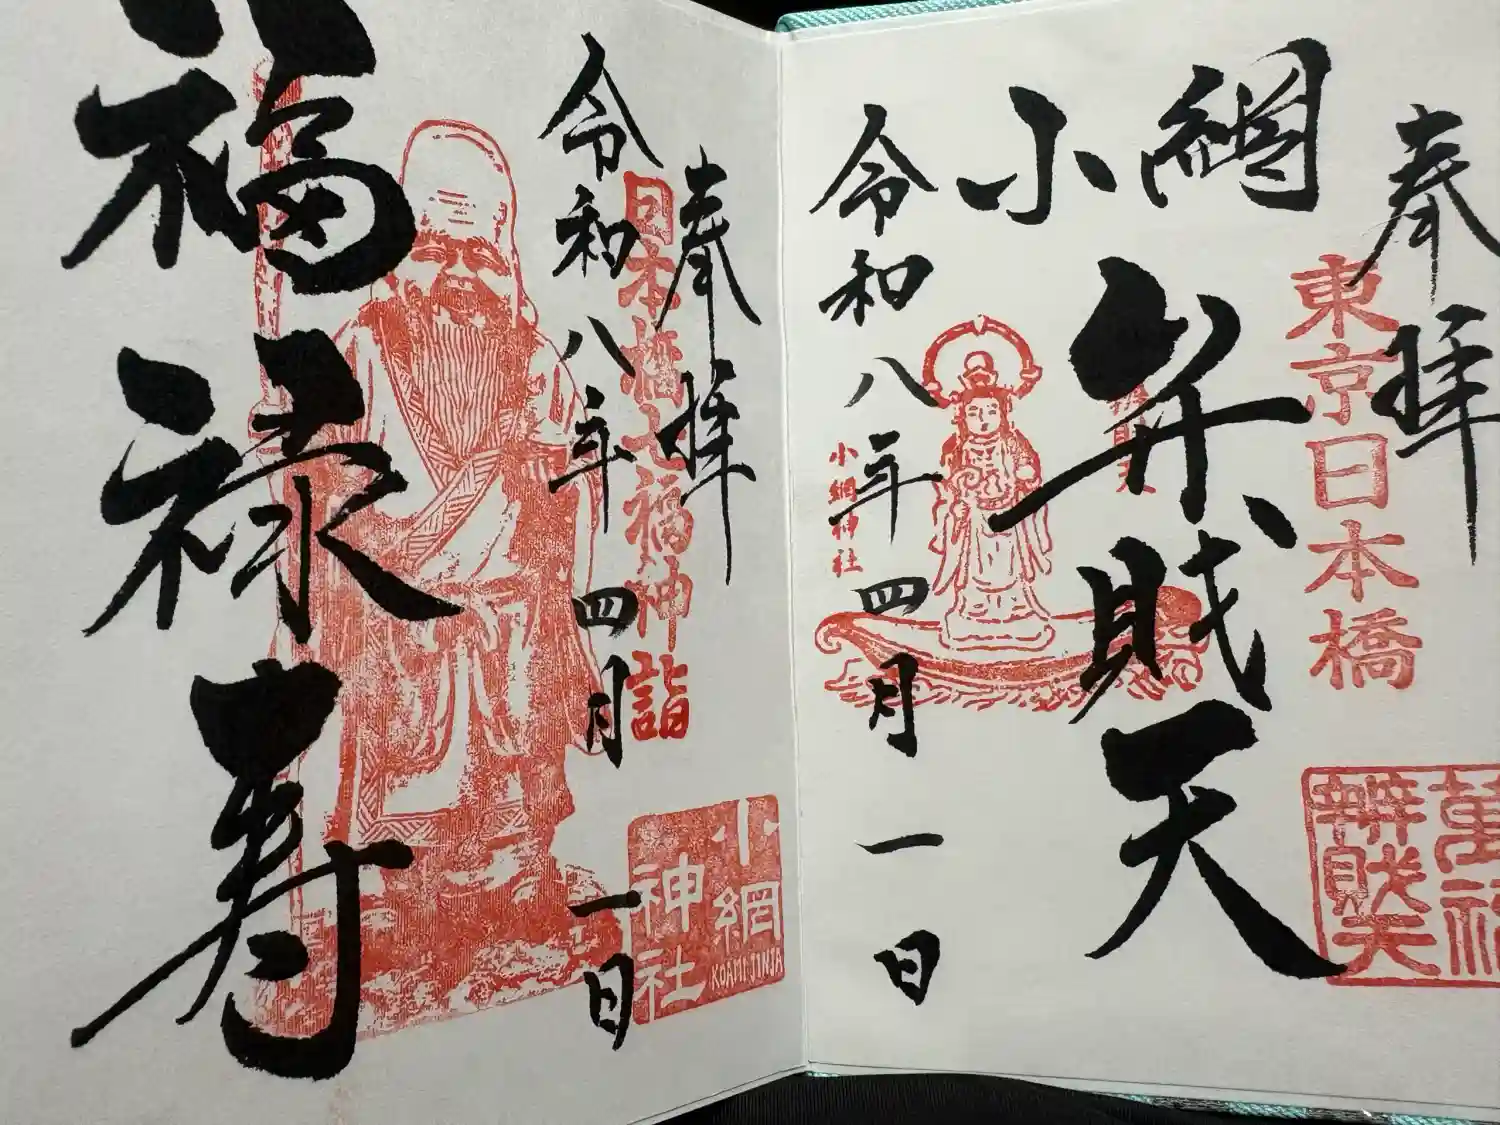 奉拝
東京日本橋
萬福
辨財天
小網
弁財天
令和八年四月一日
小網神社
奉拝
日本橋七福神詣
小網
神社
KOAMI JINJA
令和八年四月一日
福禄寿